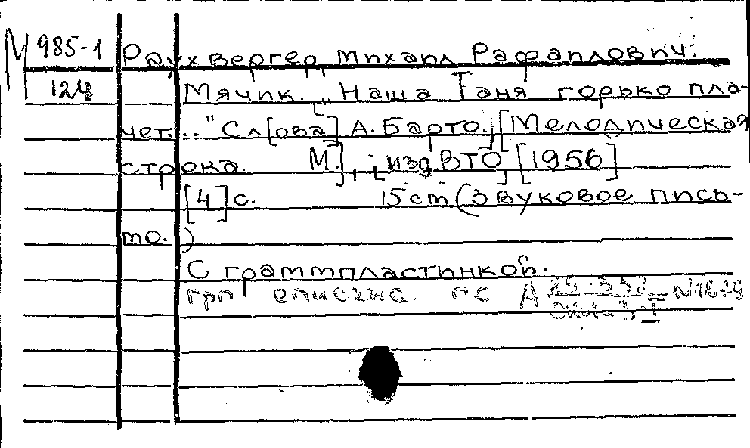 М 985-1 Раухвергер, Михаил Рафаилович.
124 Мячик. „Наша Таня горько пла-
чет..." Сл[ова] А. Барто. [Мелодическая
строка. М], [изд. ВТО, [1956]
[4] с. 15 cm (Звуковое пись-
мо.)
С граммпластинкой.